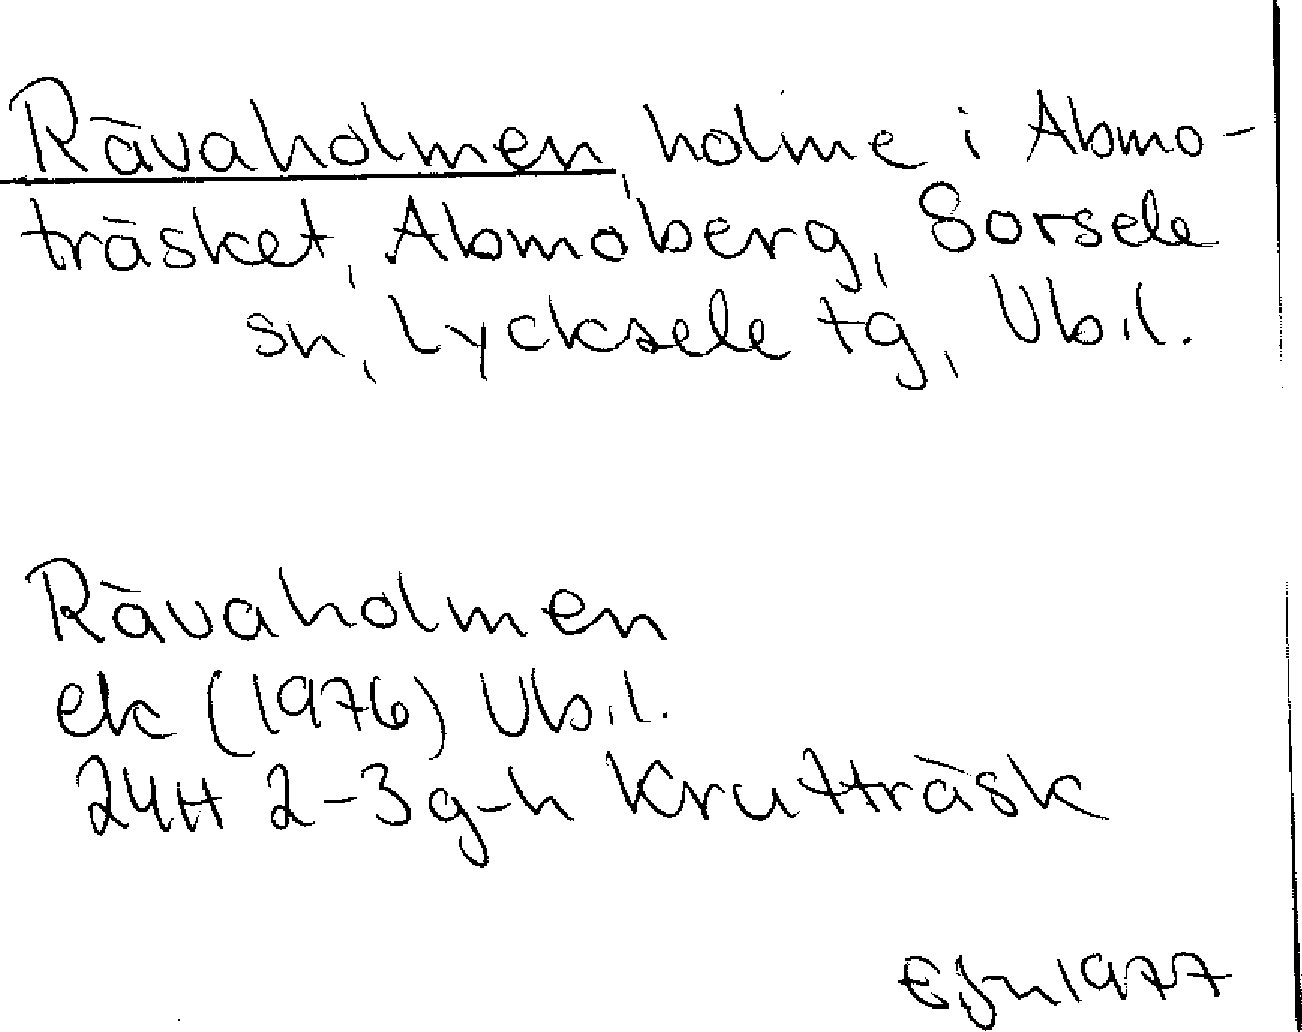 Rävaholmen, holme i Abmo-
träsket, Abmoberg, Sorsele
sn, Lycksele tg, Vb.l.
Rävaholmen
ek (1976) Vb.l.
24H 2-3g-h Krutträsk
1977